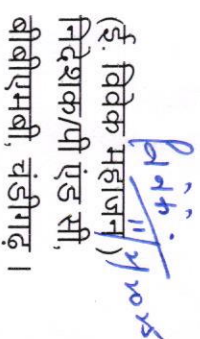 (ई. विवेक महाजन)
निदेशक/पी एंड सी,
बीबीएमबी, चंडीगढ़।